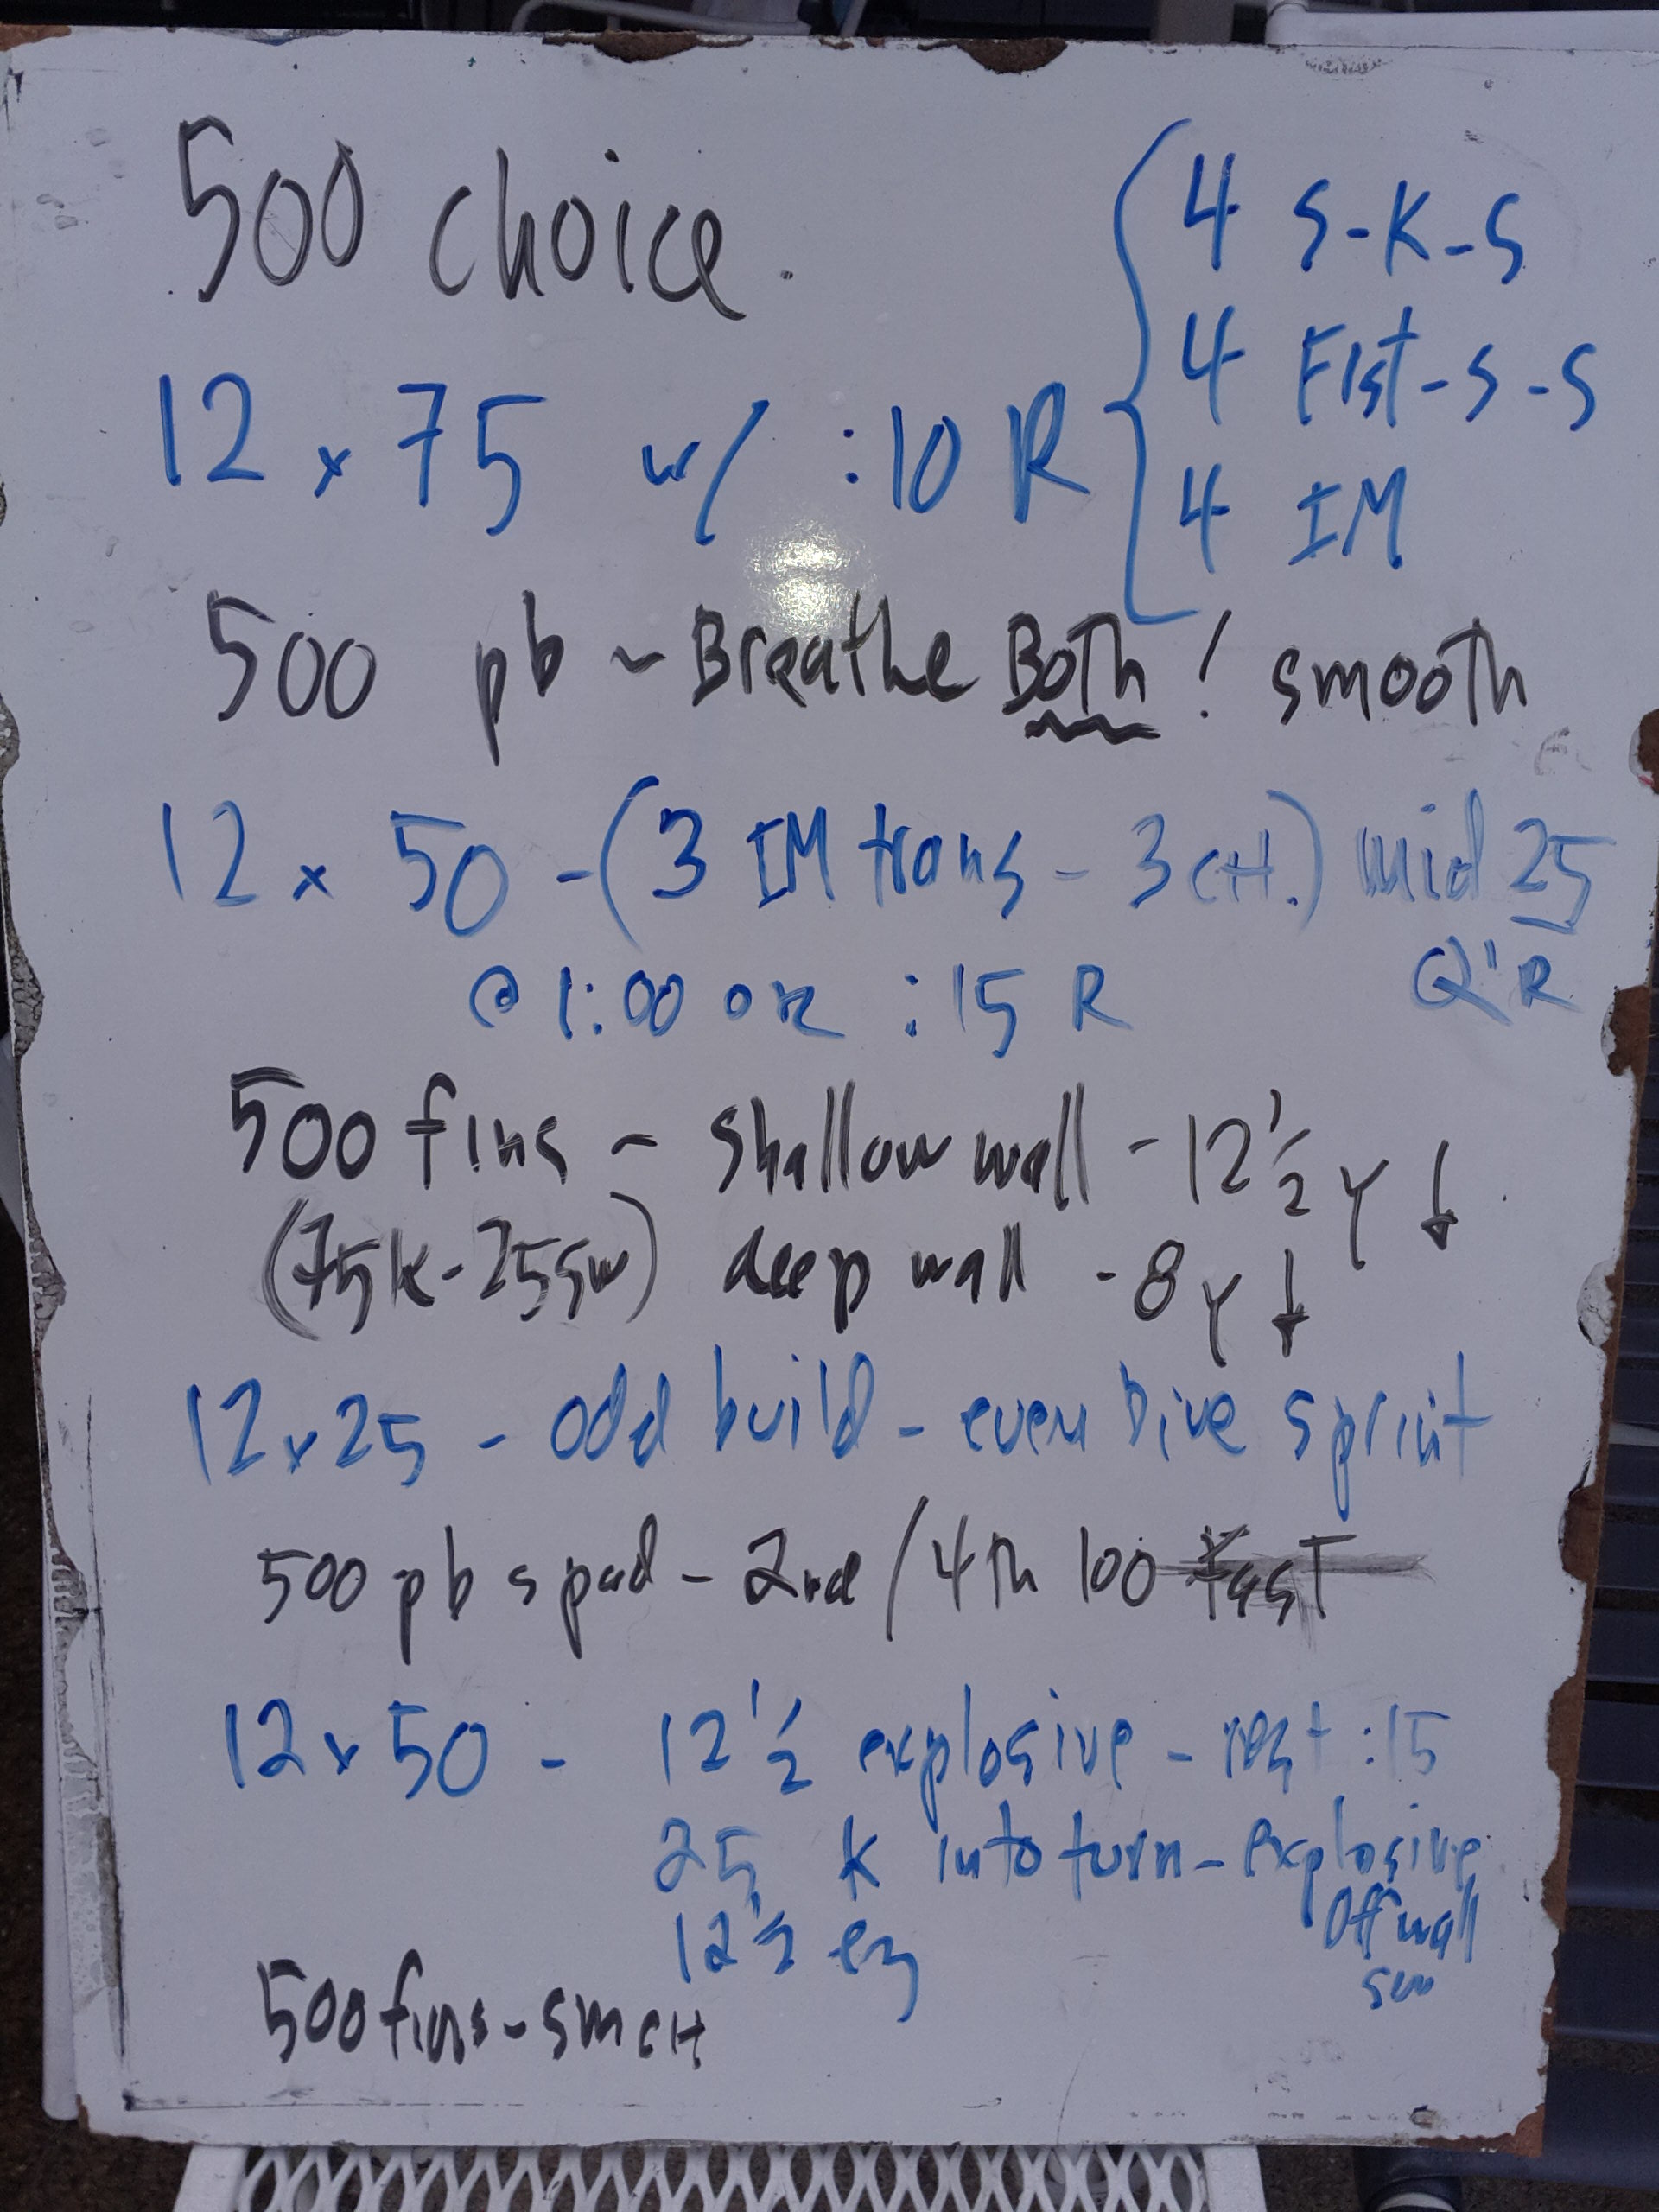 500 choice.
4 S-K-S
4 Fist-S-S
12 x 75 w/ :10 R
4 IM
500 pb ~ Breathe Both! smooth
12 x 50 - (3 IM trans - 3 CH.) mid 25
@ 1:00 OR :15 R Q'R
500 fins ~ shallow wall - 12 1/2 Y ↓
(75K-25SW) deep wall - 8Y ↓
12x25 - odd build - even Dive sprint
500 pb s pad - 2nd/4th 100 fast
12x50 - 12 1/2 explosive - rest :15
25 K into turn - explosive
off wall
12 1/2 ez
500 fins - sm CH